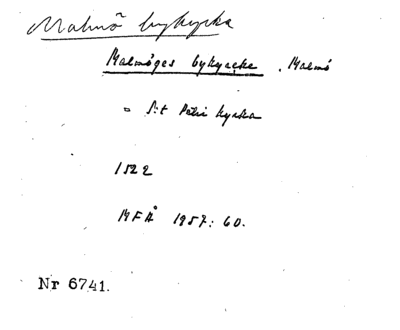 Malmö bykyrka
Malmöges bykyrcke. Malmö
= S:t Petri kyrka
1522
MFÅ 1957: 60.
Nr 6741.